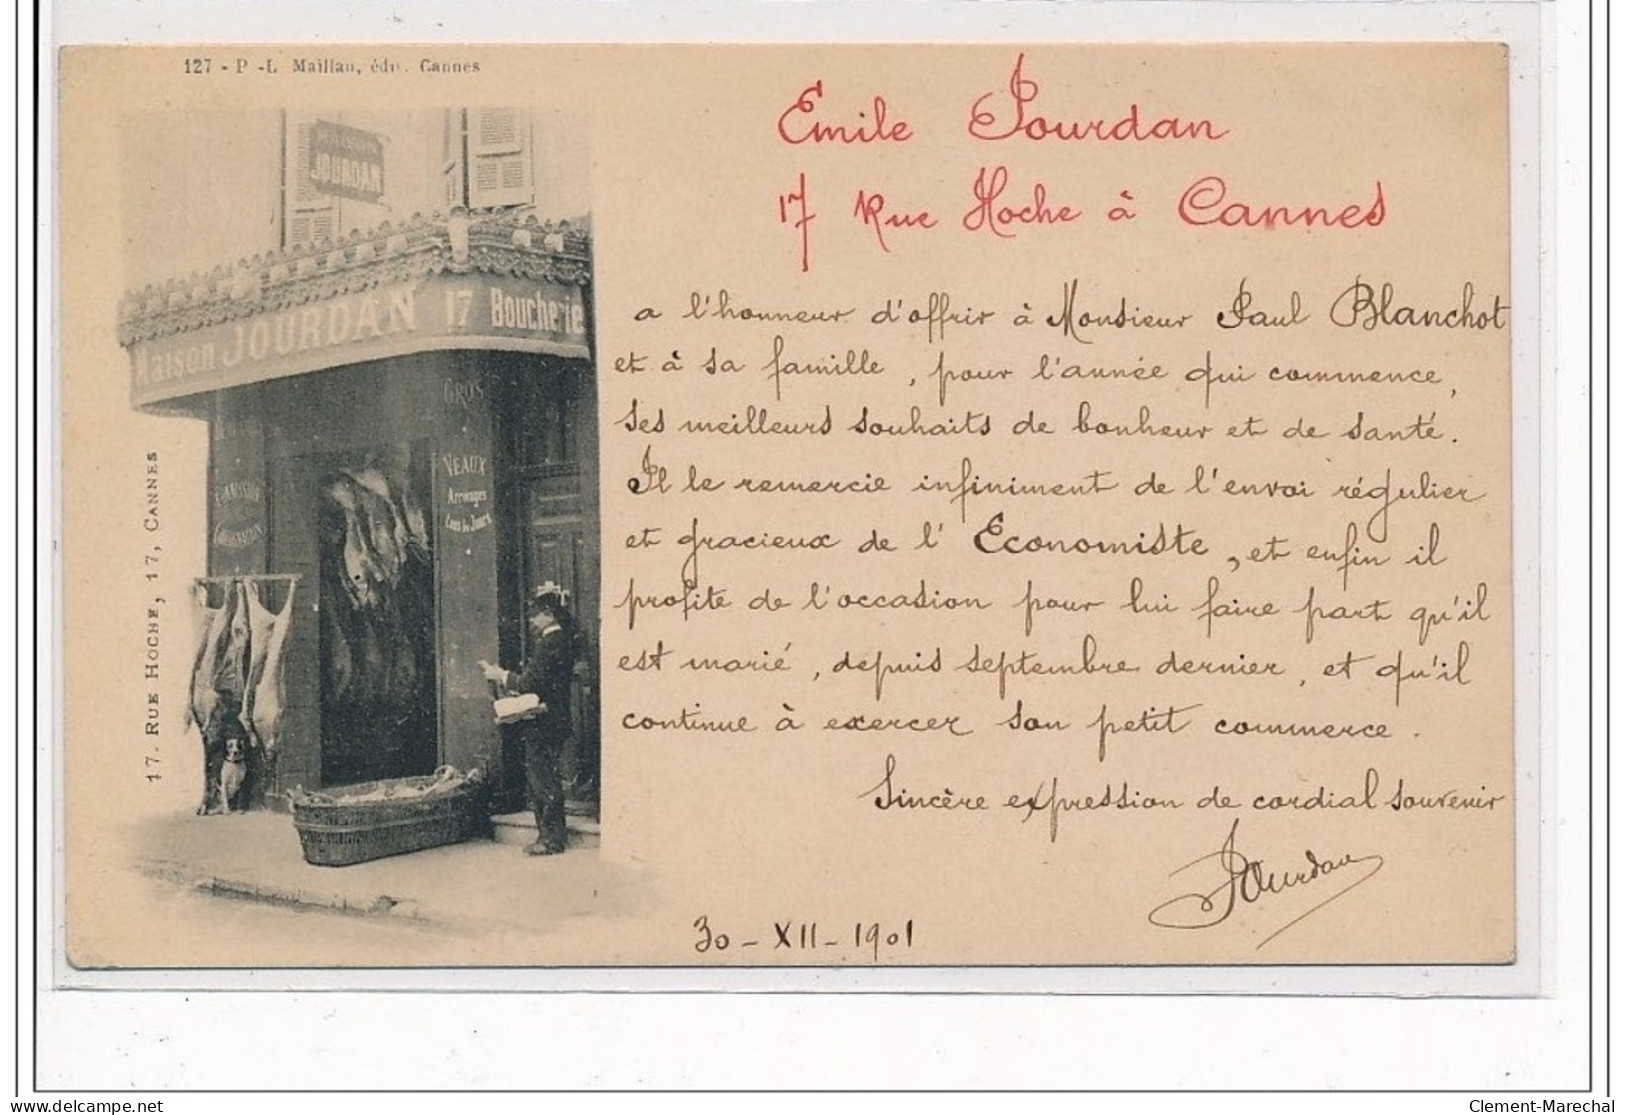 127 - P -L Maillan, édit. Cannes
MAISON
JOURDAN
Maison JOURDAN 17 Boucherie
GROS
VEAUX
Arrivages
Tous les Jours
COMMISSION
17. RUE HOCHE, 17, CANNES
Emile Jourdan
17 Rue Hoche à Cannes
a l'honneur d'offrir à Monsieur Paul Blanchot
et à sa famille, pour l'année qui commence,
ses meilleurs souhaits de bonheur et de santé.
Il le remercie infiniment de l'envoi régulier
et gracieux de l'Economiste, et enfin il
profite de l'occasion pour lui faire part qu'il
est marié, depuis septembre dernier, et qu'il
continue à exercer son petit commerce.
Sincère expression de cordial souvenir
Jourdan
30 - XII - 1901
Clement-Marechal